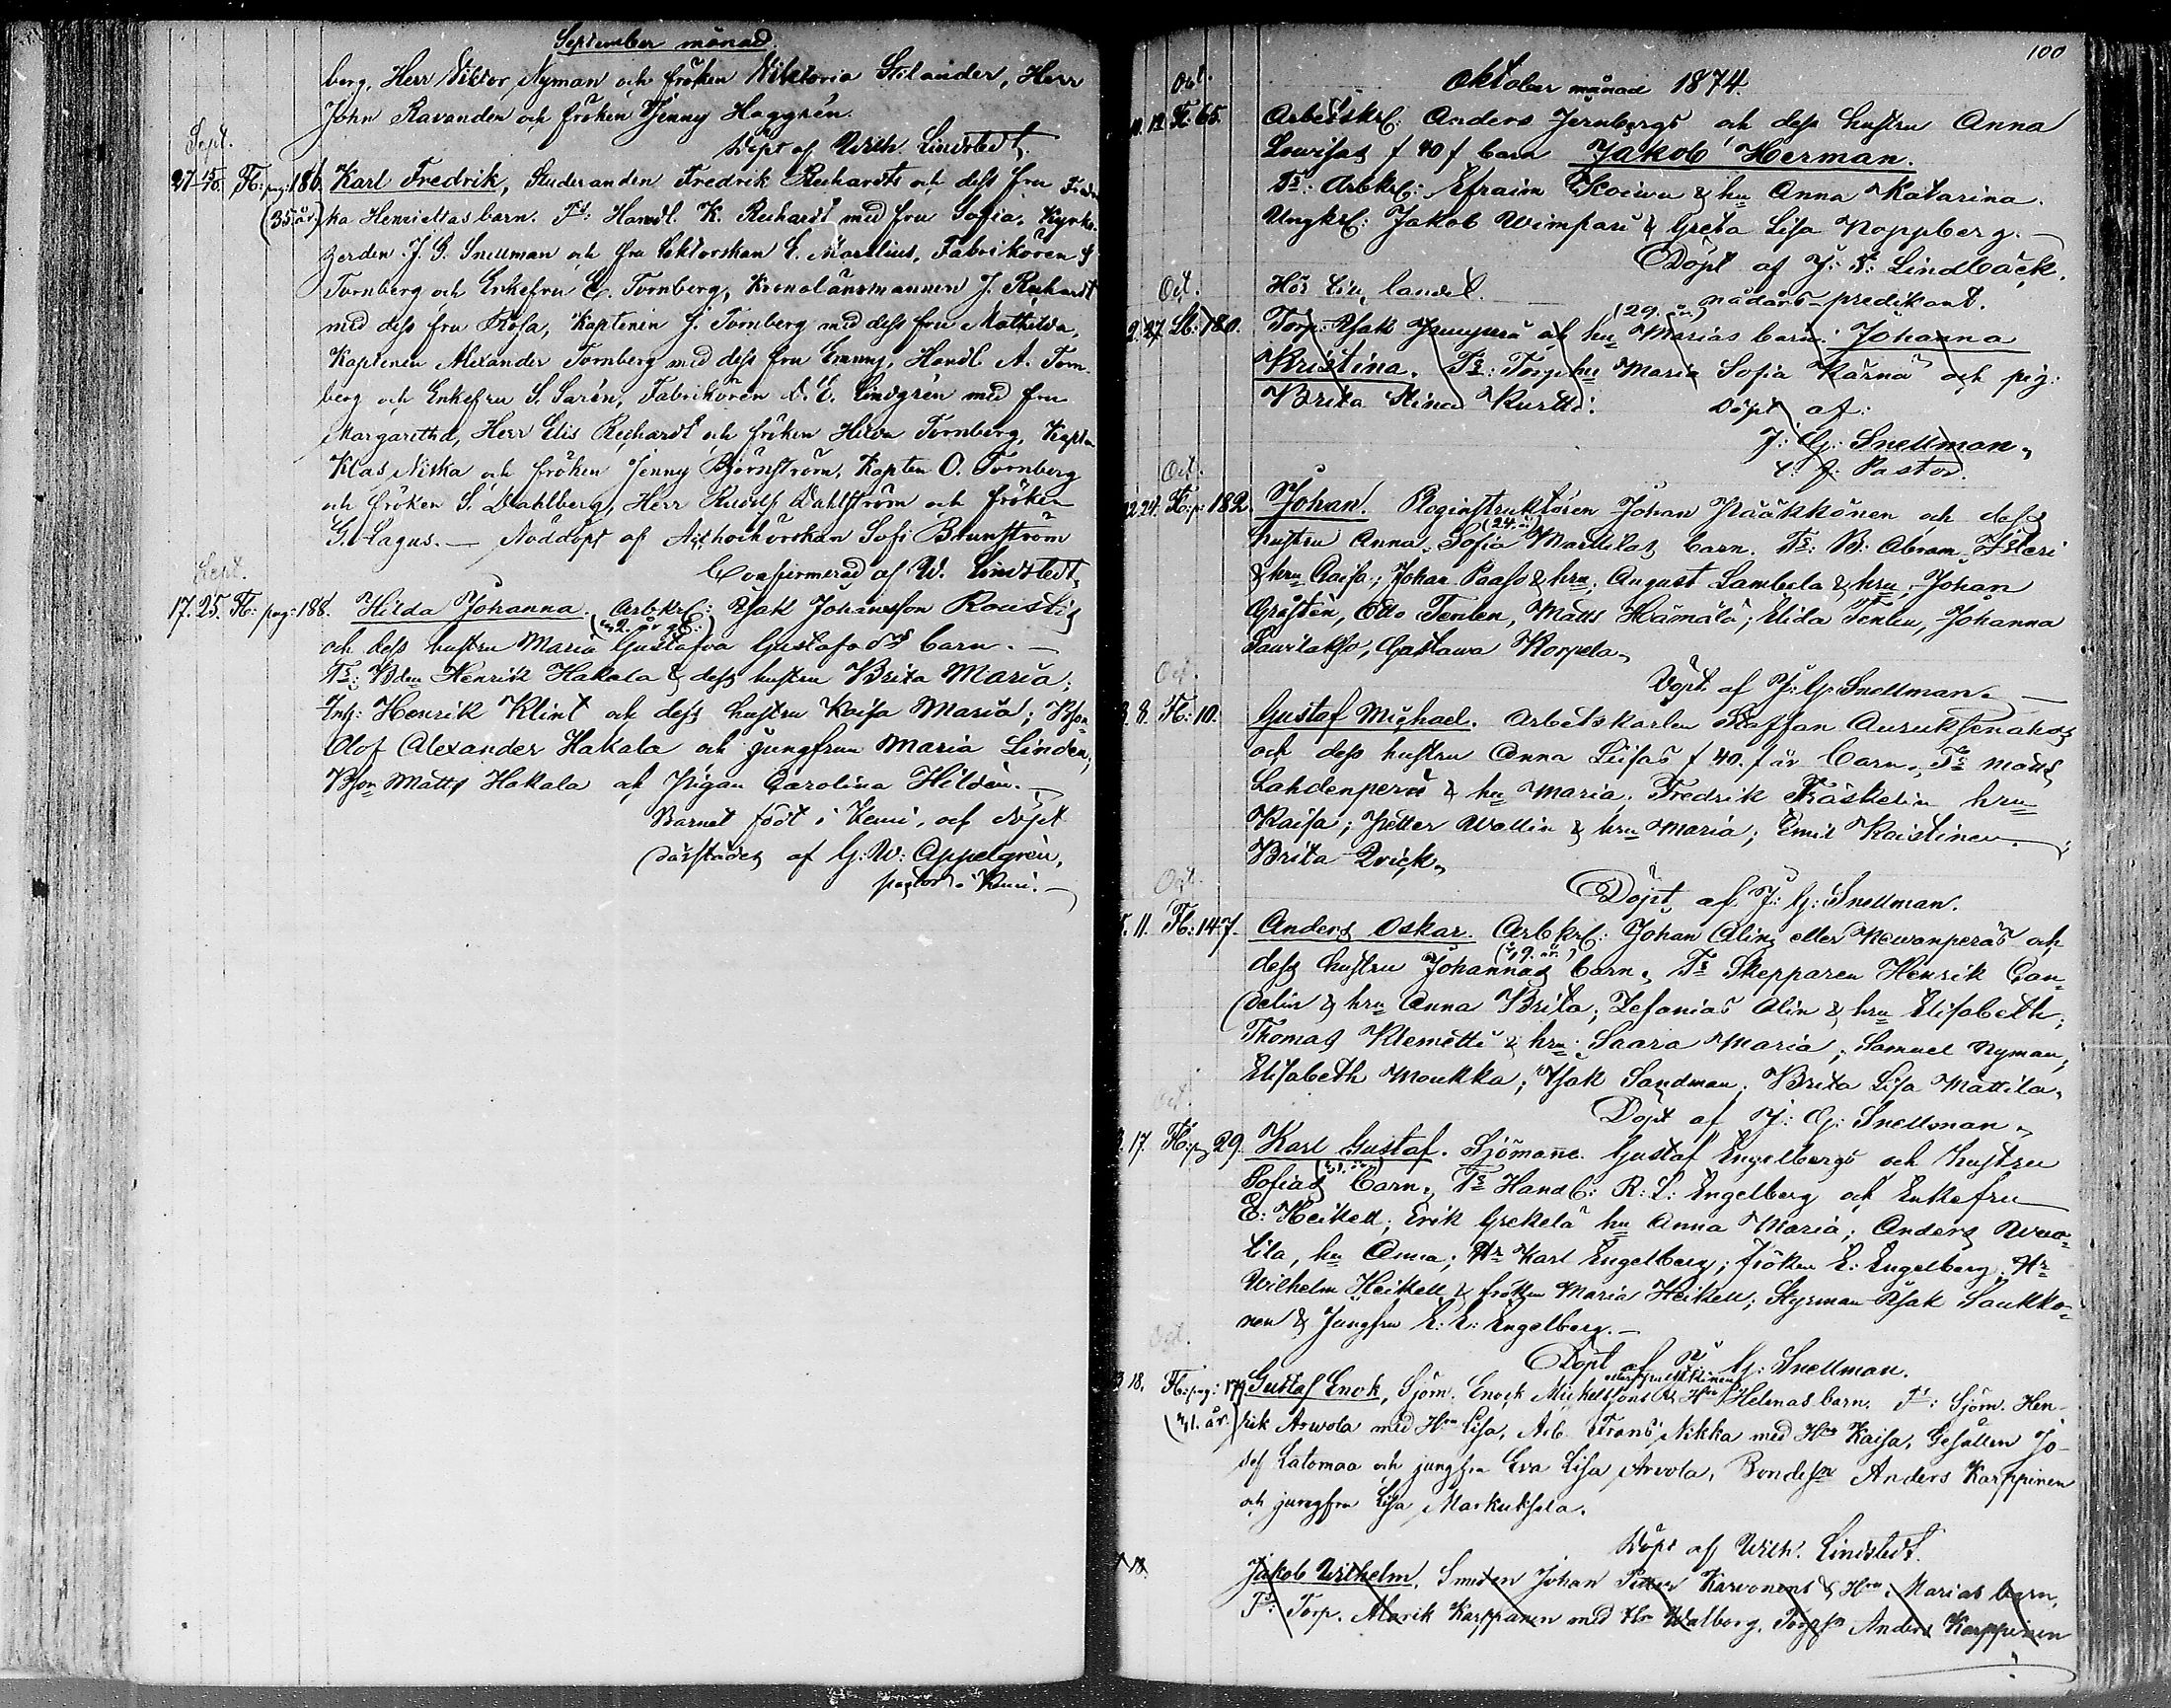 September månad.
berg, Herr Viktor Nyman och fröken Viktoria Stilander, Herr
John Ravander och fröken Jenny Haggrén.
Sept. Döpt af Wilh. Lindstedt.
27 Fb: pag: 186. Karl Fredrik, Studeranden Fredrik Reuhardts och dess fru Fredri
(35 år.) ka Henriettas barn. Ts: Handl. K. Reuhardt med fru Sofia, Kyrko
herden J. G. Snellman och fru Lektorskan E. Mortelius, Fabrikören
Tornberg och Enkefru C. Tornberg, Kronolänsmannen J. Reuhardt
med dess fru Rosa, Kaptenen J. Tornberg med dess fru Mathilda,
Kaptenen Alexander Tornberg med dess fru Emmy, Handl A. Torn
berg och Enkefru S. Sarén, Fabrikören E. Lindgrén med fru
Margaretha, Herr Elis Reuhardt och fröken Hilda Tornberg, Kapten
Klas Niska och fröken Jenny Björnström, Kapten O. Tornberg
och fröken S. Dahlberg, Herr Rudolf Dahlström och fröken
G. Lagus. — Nöddöpt af Sofi Brunström
Sept. Confirmerad af W. Lindstedt.
17. 25. Fb: pag: 188. Hilda Johanna. Arbkrl: Isak Johansson Roustis
(42 år gl:)
och dess hustru Maria Gustafva Gustafsdrs barn. —
Ts: Bden Henrik Hakala & dess hustru Brita Maria;
Inh: Henrik Klint och dess hustru Kaisa Maria; Bson
Olof Alexander Hakala och jungfrun Maria Linden;
Bson Matts Hakala och Pigan Carolina Hildén. —
Barnet födt i Kemi, och döpt
därstädes af G: W: Appelgrén,
pastor i Kemi. —
100
Oct. Oktober månad 1874.
10. 12. Fb. 65. Arbetskrl: Anders Jernbergs och dess hustru Anna
Lovisas / 40 / barn Jakob Herman.
Ts: Arbkrl: Efraim Koivu & hu Anna Katarina.
Ungkrl: Jakob Wimpari & Greta Lisa Noppberg. —
Döpt af J: F: Lindbäck,
Oct. Hör till landet. — nådårs-predikant.
(29. år)
2. 27. Lb: 180. Torp: Isak och hu Marias barn: Johanna
Kristina. Ts: Torp hu Maria Sofia Kärnä och pig:
Brita Stina Kurtti. Döpt af:
J: G: Snellman,
Oct. t. f. Pastor.
22 24. Fb: p: 182. Johan. Ploginstruktören Johan Pääkkönen och dess
(24. år)
hustru Anna Sofia Marttilas barn. Ts: B: Abram Isteri
& hru Caisa; Johan Paaso & hru; August Lambela & hru; Johan
Gråsten, Otto Tenlen, Matts Hämälä; Elida Tenlen, Johanna
Saurlakso, Gustava Korpela.
Oct. Döpt af J: G: Snellman. —
3. 8. Fb: 10. Gustaf Michael. Arbetskarlen Staffan Auruksenahos
och dess hustru Anna Luisas / 40. / år barn. Ts Matts
Lahdenperä & hu Maria. Fredrik Fräskelin hru
Kaisa; Petter Wallin & hru Maria; Emil Koistinen.
Brita Qvick.
Oct. Döpt af J: G: Snellman.
5. 11. Fb: 147. Anders Oskar. Arbkrl: Johan Alins eller Newanperäs och
dess hustru Johannas barn. Ts Skepparen Henrik Can-
delin & hru Anna Brita; Zefanias Alin & hru Elisabeth;
Thomas Klemetti & hru Saara Maria; Samuel Nyman;
Elisabeth Moukka; Isak Sandman; Brita Lisa Mattila.
Oct. Döpt af J: G: Snellman.
3. 17. Fb: p. 29. Karl Gustaf. Sjömann. Gustaf Engelbergs och hustru
Sofias barn. Ts Handl: R: L: Engelberg och Enkefru
E: Heikell; Erik Grekelä hu Anna Maria; Anders Wuo-
tila, hu Anna; Hr Karl Engelberg; fröken E: Engelberg; Hr
Wilhelm Heikell & fröken Maria Heikell; Styrman Isak Saukko-
nen & Jungfru E: E: Engelberg. —
Oct. Döpt af J: G: Snellman.
3 18. Fb: pag: 179 Gustaf Enok, Sjöm. Enock Mickelssons & Hru Helenas barn. Ts: Sjöm. Hen-
(41. år) rik Arvola med Hru Lisa, Arb. Frans Nikka med Hru Kaisa, Gesällen Jo-
sef Latomaa och jungfru Eva Lisa Arvola, Bondeson Anders Karppinen
och jungfru Lisa Markuksela.
Döpt af Wilh. Lindstedt.
18. Jakob Wilhelm, Smeden Johan Petter Karvonens & Hru Marias barn,
Ts: Torp. Alarik Karppanen med Hu Walborg, Torpson Anders Karppinen